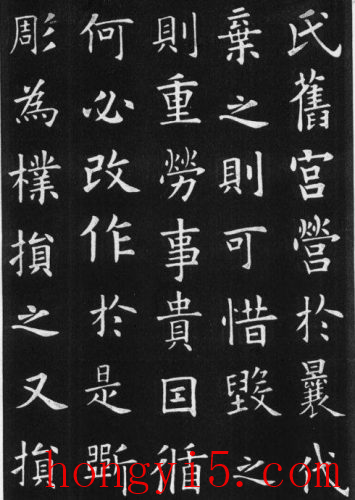 氏舊宮營於曩代
棄之則可惜毀之
則重勞事貴因循
何必改作於是斵
彫為樸損之又損
hongyi5.com